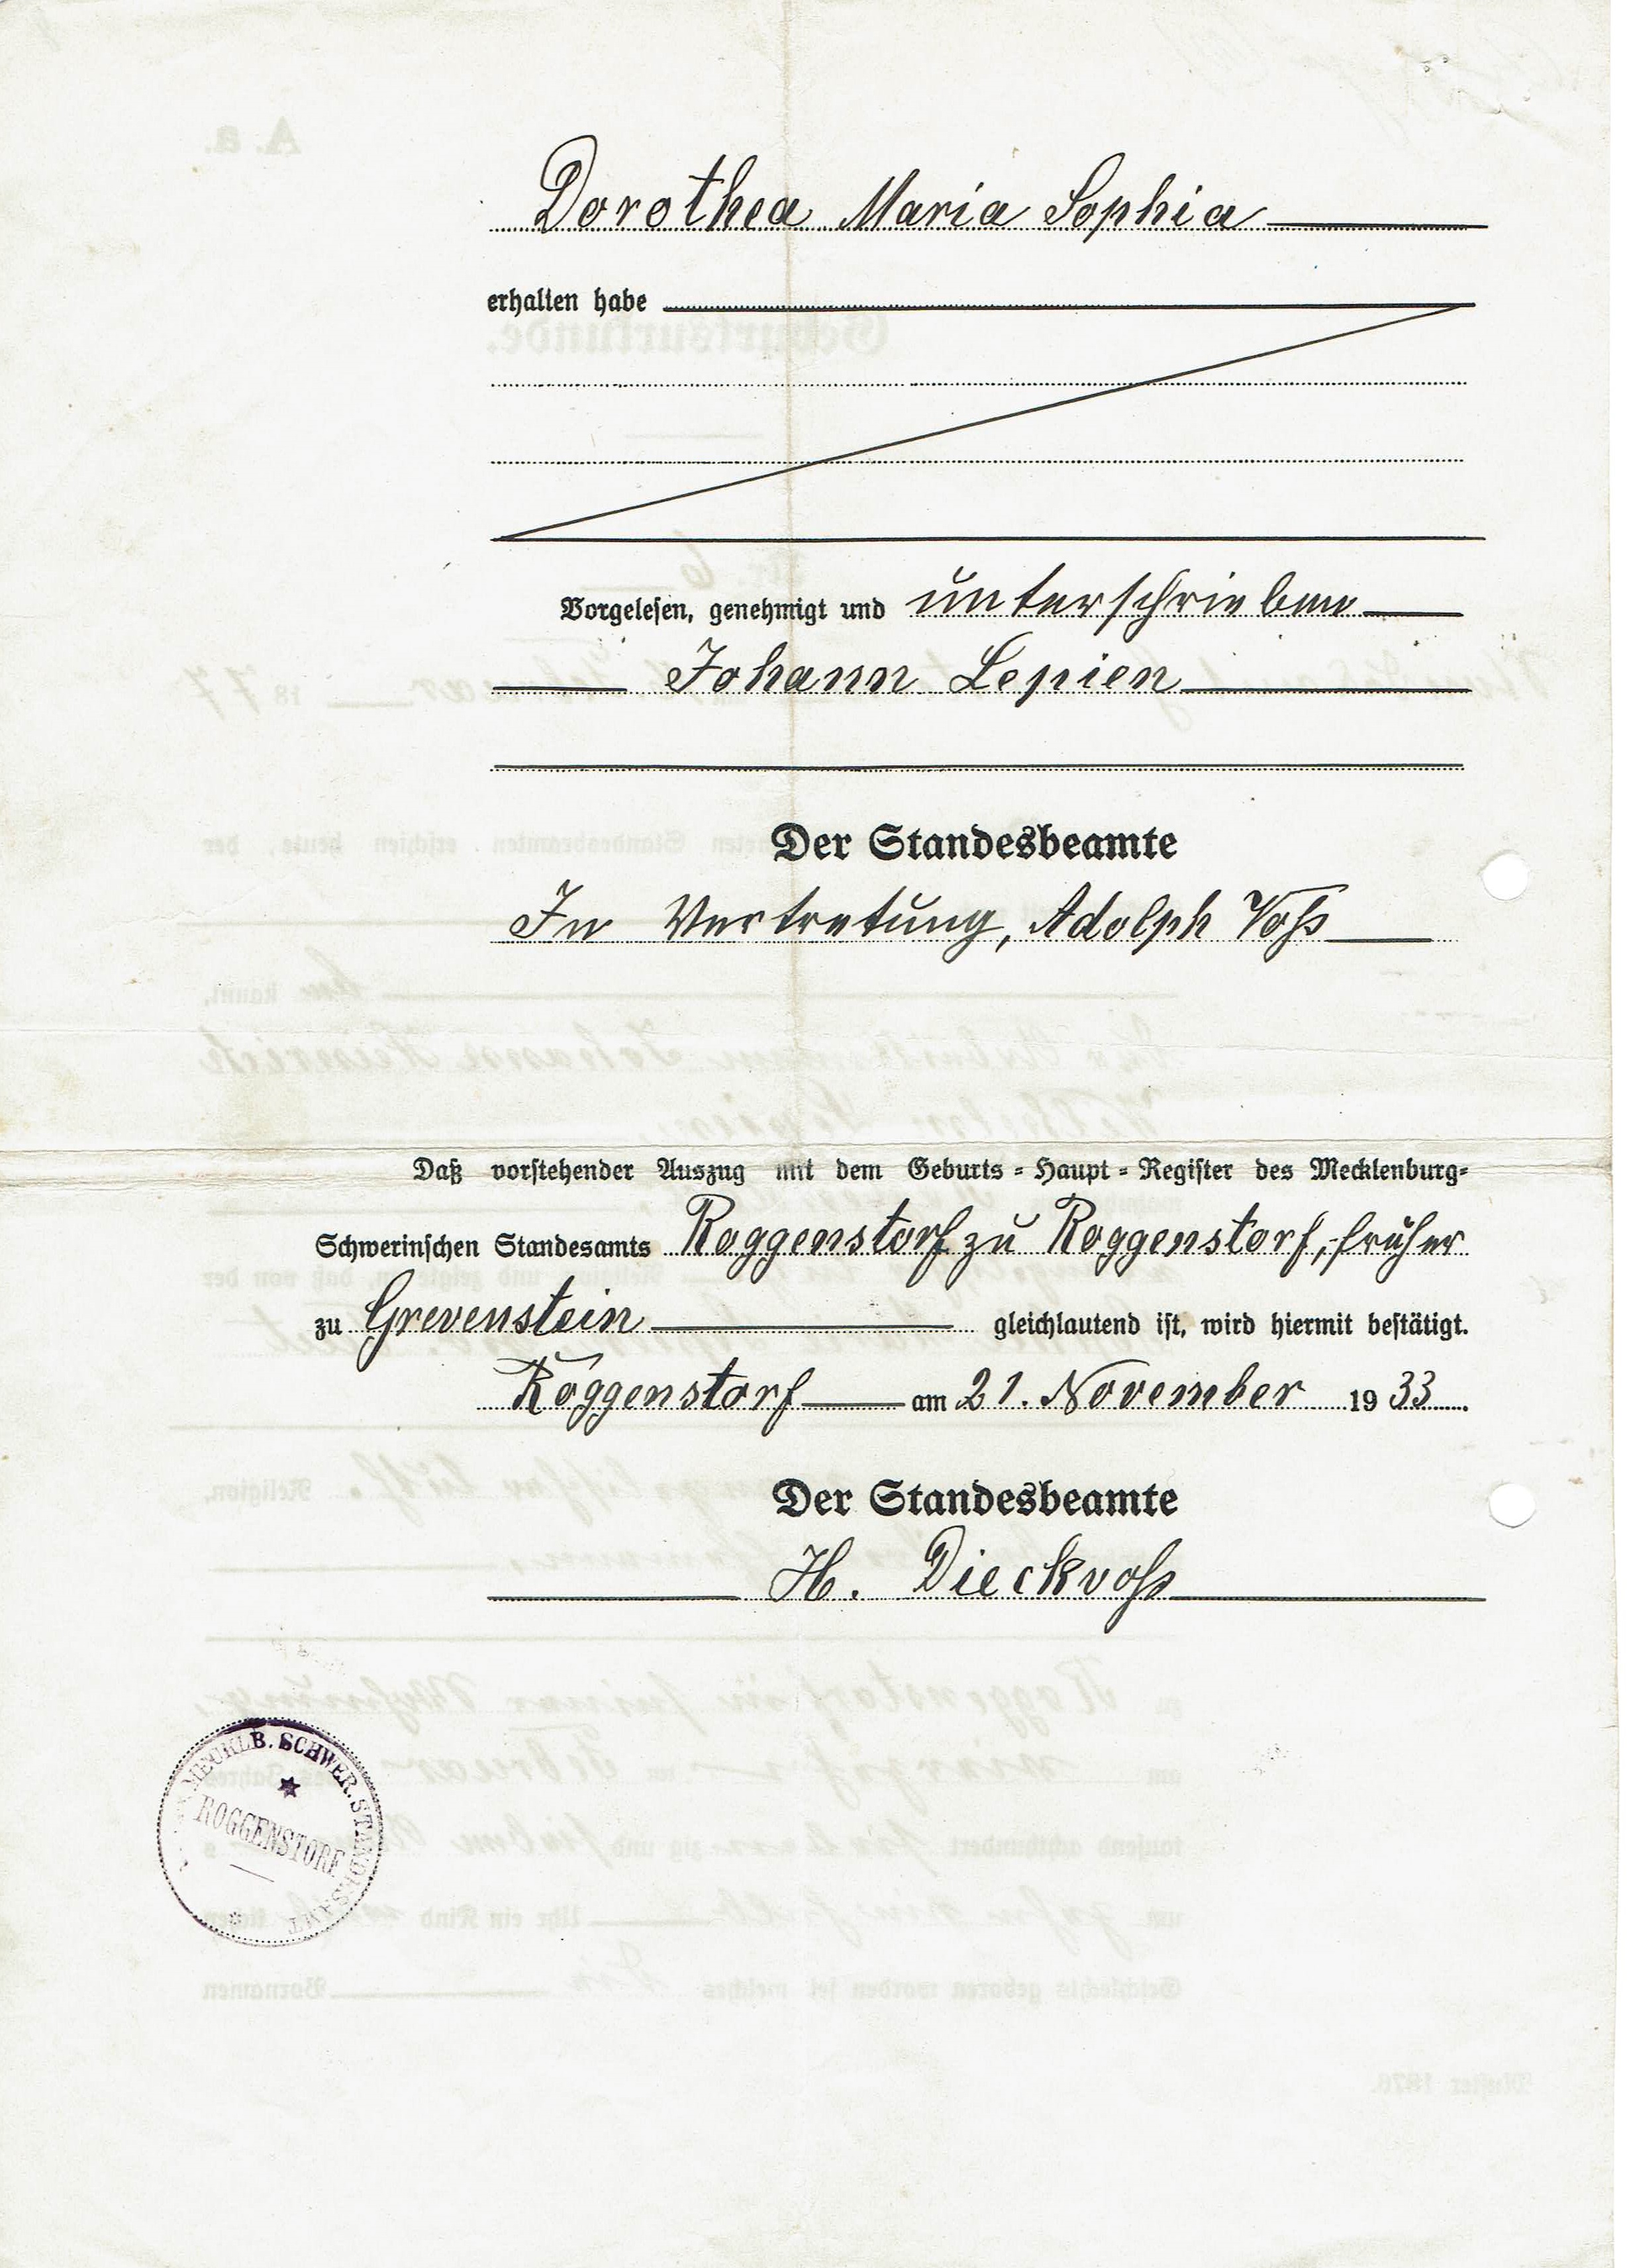 Dorothea Maria Sophia
erhalten habe
Vorgelesen, genehmigt und unterschrieben
Johann Lepien
Der Standesbeamte
In Vertretung, Adolph Voß
Daß vorstehender Auszug mit dem Geburts-Haupt-Register des Mecklenburg-
Schwerinschen Standesamts Roggenstorf zu Roggenstorf, früher
zu Grevenstein gleichlautend ist, wird hiermit bestätigt.
Roggenstorf am 21. November 1933.
Der Standesbeamte
H. Dieckvoß
MECKLB. SCHWER. STANDESAMT
ROGGENSTORF